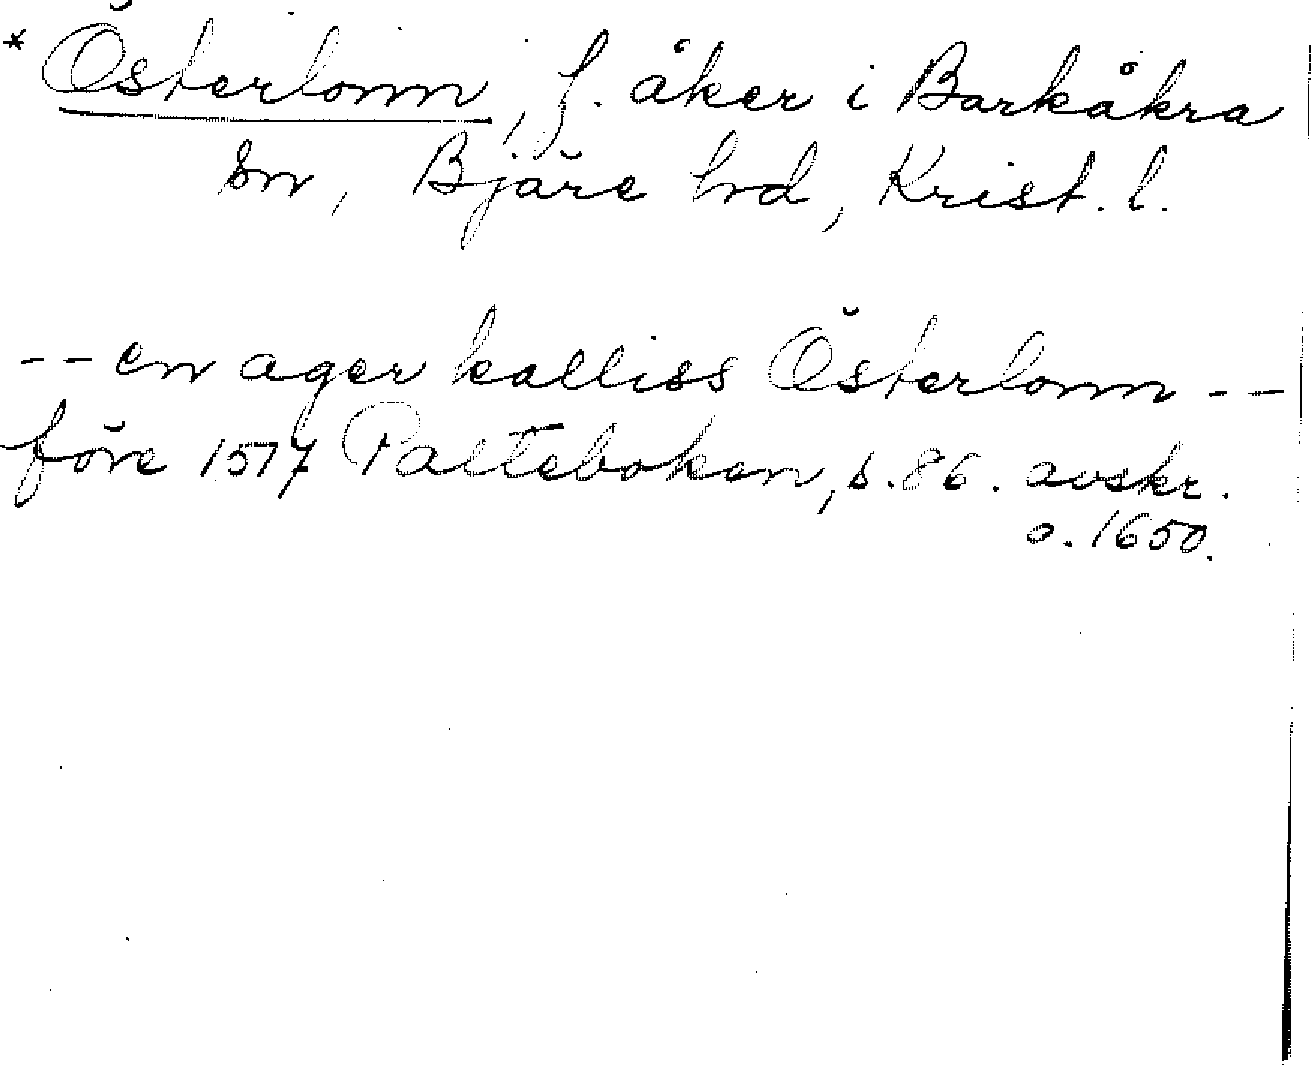 * Österlonn, f. åker i Barkåkra
sn, Bjäre hd, Krist. l.
-- en ager kalliss Österlonn --
före 1577 Palteboken, s. 86. avskr.
o. 1650.